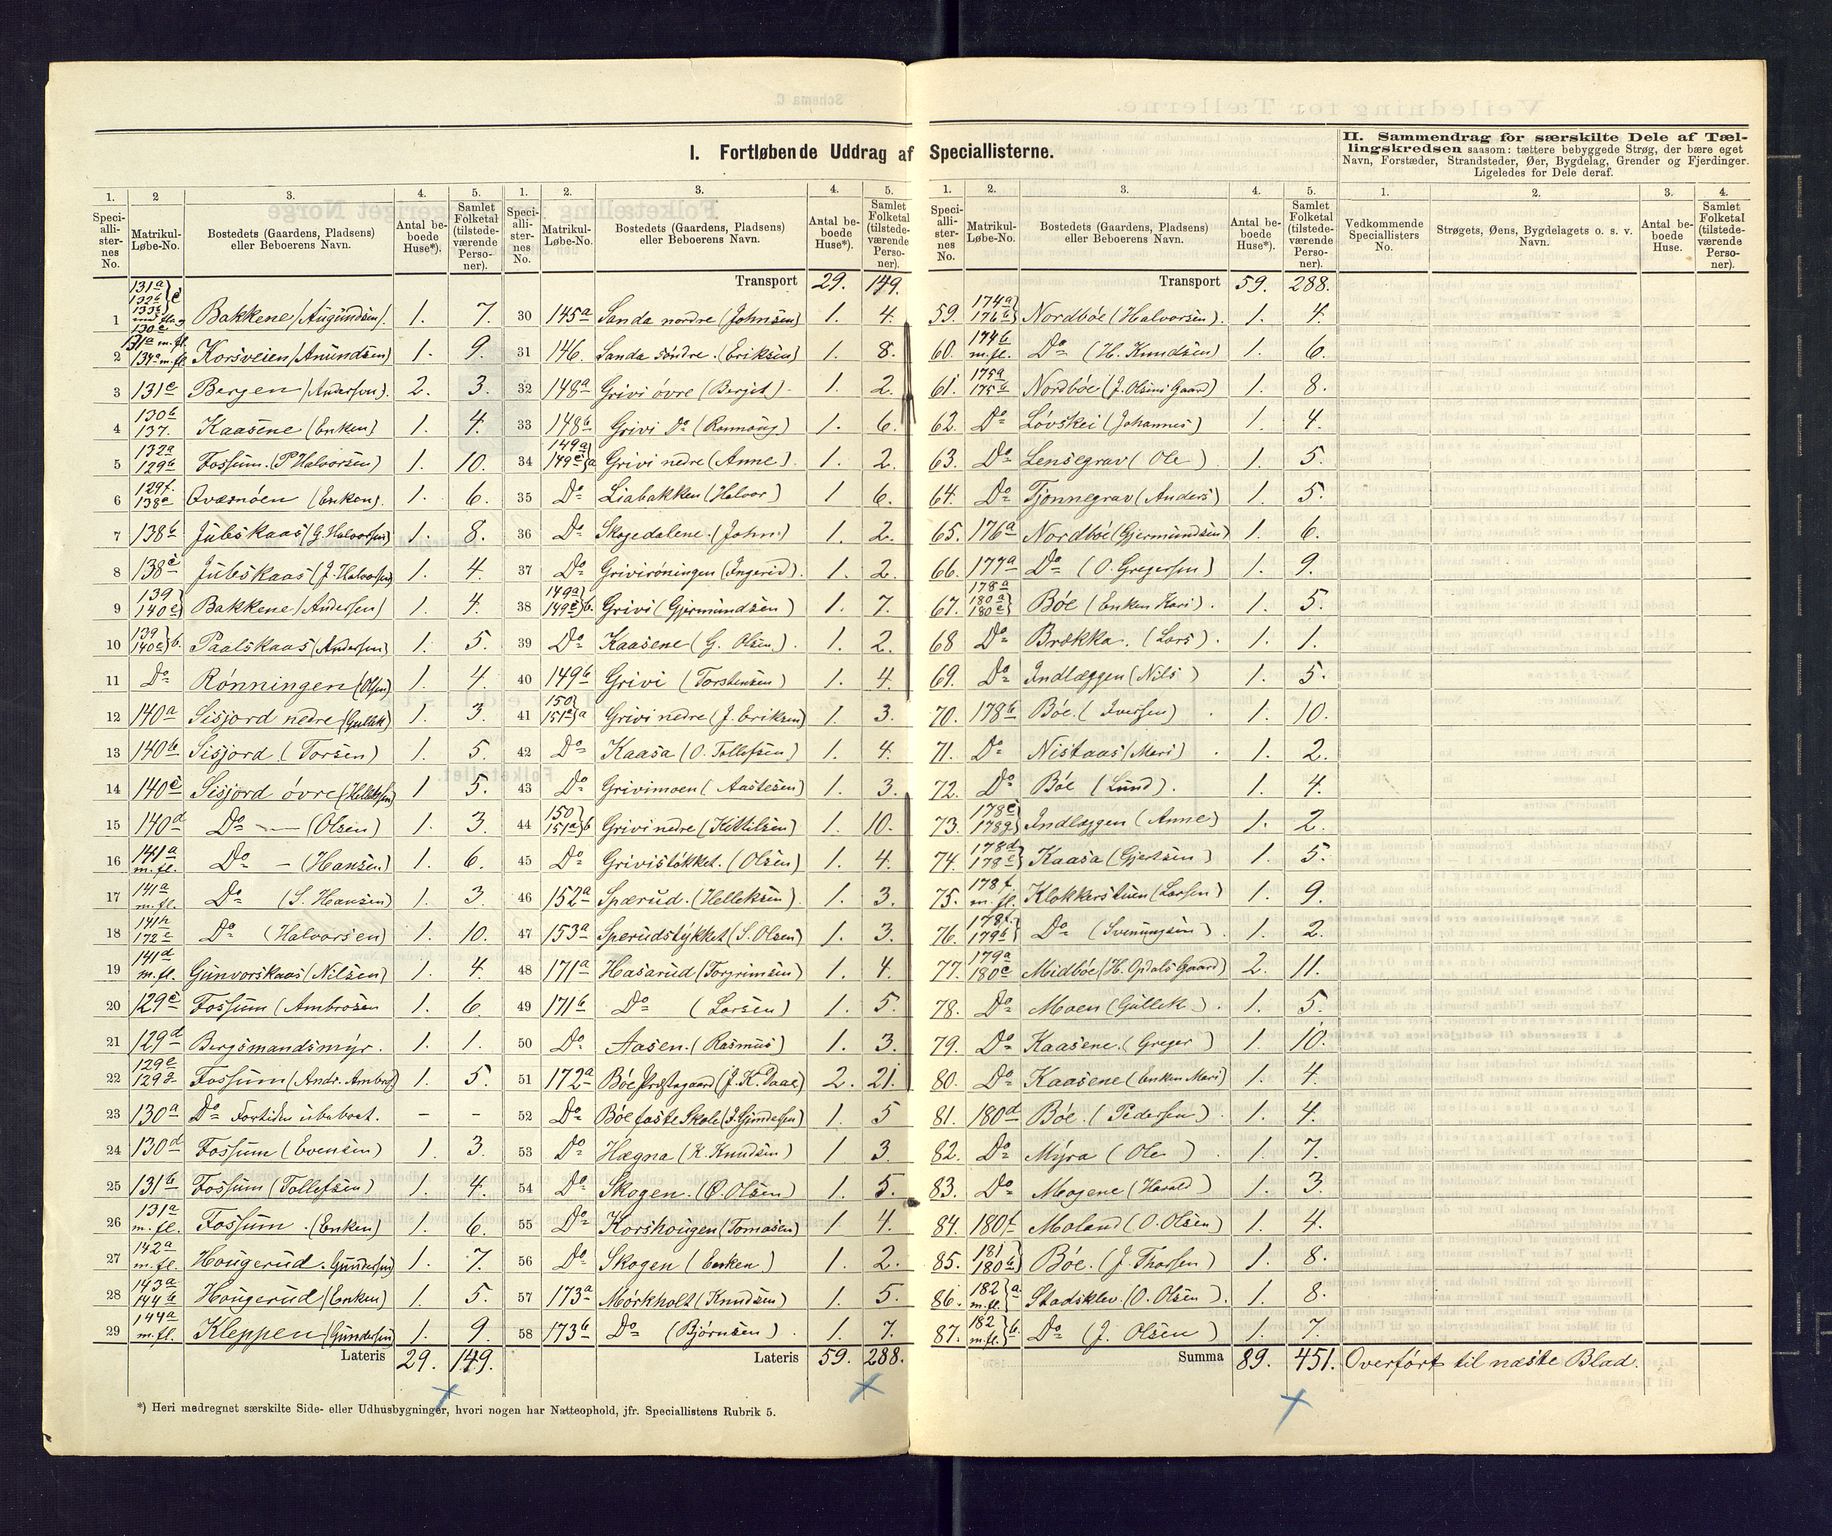 I. Fortløbende Uddrag af Speciallisterne.
II. Sammendrag for særskilte Dele af Tæl-
lingskredsen saasom: tættere bebyggede Strøg, der bære eget
Navn, Forstæder, Strandsteder, Øer, Bygdelag, Grender og Fjerdinger.
Ligeledes for Dele deraf.
1. 2 3. 4. 5. 1. 2. 3. 4. 5. 1. 2. 3. 4. 5. 1. 2. 3. 4.
Speci-alli-ster-nes No. Matrikul-Løbe-No. Bostedets (Gaardens, Pladsens) eller Beboerens Navn. Antal be-boede Huse*). Samlet Folketal (tilstede-værende Perso-ner).
Speci-alli-ster-nes No. Matrikul-Løbe-No. Bostedets (Gaardens, Pladsens) eller Beboerens Navn. Antal be-boede Huse*). Samlet Folketal (tilstede-værende Perso-ner).
Speci-alli-ster-nes No. Matrikul-Løbe-No. Bostedets (Gaardens, Pladsens) eller Beboerens Navn. Antal be-boede Huse*). Samlet Folketal (tilstede-værende Perso-ner).
Vedkommende Speciallisters No. Strøgets, Øens, Bygdelagets o. s. v. Navn. Antal be-boede Huse. Samlet Folketal (tilstede-værende Perso-ner).
1 Bakkene (Augundsen). 1. 7.
2 131a m.fl. 134a m.fl. Korsveien (Anundsen) 1. 9.
3 131c Bergen (Andersen) 2. 3.
4 130b 137. Kaasene (Enken) 1. 4.
5 132a 129b Fossum. (P Halvorsen) 1. 10.
6 129f 138a Qvæsnöen (Enken). 1. 6.
7 138b Jubskaas (G. Halvorsen) 1. 8.
8 138c Jubskaas (J. Halvorsen) 1. 4.
9 139 140c Bakkene (Andersen) 1. 4.
10 139 140c b. Paalskaas (Andersen) 1. 5.
11 Do Rønningen (Olsen) 1. 4.
12 140a Sisjord nedre (Gullek) 1. 3.
13 140b Sisjord (Torsen) 1. 5.
14 140c Sisjord övre (Helleksen) 1 5.
15 140d Do — (Olsen) 1. 3.
16 141a m.fl. Do - (Hansen) 1. 6.
17 141a m.fl. Do (S. Hansen) 1. 3.
18 141h 172c Do (Halvorsen) 1. 10.
19 141d m.fl. Gunvorskaas (Nilsen) 1. 4.
20 129c Fossum (Ambrosen 1. 6.
21 129d Bergsmandsmyr. 1. 1.
22 129e 129g Fossum (Andr. Ambros) 1. 5.
23 130a Do Fortiden ubeboet. - -
24 130d Fossum (Evensen) 1. 3.
25 131b Fossum (Tollefsen) 1. 4.
26 131a m.fl. Fossum. (Enken) 1. 6.
27 142a m.fl. Hougerud. (Gundersen) 1. 7.
28 143a 144b Hougerud (Enken) 1. 5.
29 144a m.fl. Kleppen (Gundersen) 1. 9.
Lateris 29. 149.
Transport 29. 149.
30 145a Sanda nordre (Johnsen) 1. 4.
31 146. Sanda söndre. (Eriksen) 1. 8.
32 148a Grivi övre (Bergit). 1. 2.
33 148b Grivi Do (Rannoug) 1. 6.
34 149a 149c a Grivi nedre (Anne). 1. 2.
35 Do Liabakken (Halvor) 1 6.
36 Do Skogedalene. (John) 1. 2.
37 Do Griviröningen (Ingerid). 1. 2.
38 149a 149c b. Grivi (Gjermundsen) 1. 7.
39 Do Kaasene (G. Olsen) 1. 2.
40 149b Grivi (Torstensen) 1. 4.
41 150 151a a Grivi nedre (J. Eriksen) 1. 3.
42 Do Kaasa (O. Tollefsen) 1. 4.
43 Do Grivimoen (Aastesen) 1. 3.
44 150 151a b Grivi nedre (Kittilsen) 1. 10.
45 Do Grivistökket. (Olsen) 1. 4.
46 152a Spærud. (Helleksen). 1. 3.
47 153a Sperudstykket (S. Olsen) 1. 3.
48 171a Hasarud (Torgrimsen) 1. 4.
49 171b Do (Larsen) 1. 5.
50 Do Aasen. (Rasmus) 1. 3.
51 172a Böe Præstegaard (J. K. Daae) 2. 21.
52 Do Böe faste Skole (J. Gundersen) 1. 5
53 Do Hægna (K. Knudsen) 1 3.
54 Do Skogen. (O. Olsen) 1. 5.
55 Do Korshougen (Tomasen) 1. 4.
56 Do Skogen (Enken) 1. 2.
57 173a Mörkholt (Knudsen) 1. 5.
58 173b Do (Björnsen). 1. 7.
Lateris 59. 288.
Transport 59. 288.
59. 174a 176b Nordböe (Halvorsen). 1. 4.
60. 174b m.fl. Do (H. Knudsen) 1. 6.
61. 175a 175b Nordböe (J. Olsens Gaard) 1. 8.
62. Do Lövskei (Johannes) 1. 4.
63. Do Lensegrav (Ole) 1. 5.
64. Do Tjönnegrav (Anders) 1. 5.
65. 176a Nordböe (Gjermundsen) 1. 6.
66. 177a Do (O. Gregersen) 1. 9.
67. 178a 180a 180c Böe (Enken Kari). 1. 5.
68 Do Brækka. (Lars). 1. 1.
69. Do Indlæggen (Nils) 1. 5.
70. 178b Böe. (Iversen) . 1. 10.
71. Do Nistaas (Mari) . 1. 2.
72. Do Böe (Lund). 1. 4.
73. 178c 178g Indlæggen (Anne) 1. 2.
74. 178d 178e Kaasa (Gjertsen) 1. 5.
75. 178f. m.fl. Klokkerstuen (Larsen) 1. 9.
76. 178f. 179b Do (Svenungsen) 1. 2.
77. 179a 180e Midböe (H. Opdals Gaard) 2. 11.
78. Do Moen (Gullik). 1. 5.
79. Do Kaasene. (Greger) 1. 10.
80. Do Kaasene (Enken Mari) 1. 4.
81. 180d Böe. (Pedersen) 1. 4.
82. Do Myra (Ole) . 1. 7.
83. Do Mogene (Harald) 1. 3.
84. 180f Moland (O. Olsen) 1. 4.
85. 181 180b Böe. (J. Thorsen) 1. 8.
86. 182 m.fl. a. Stadsklev (O. Olsen). 1. 8.
87. 182 m.fl. b. Do (J. Olsen) 1. 7.
Summa 89. 451. Overfört til næste Blad.
*) Heri medregnet særskilte Side- eller Udhusbygninger, hvori nogen har Natteophold, jfr. Speciallistens Rubrik 5.